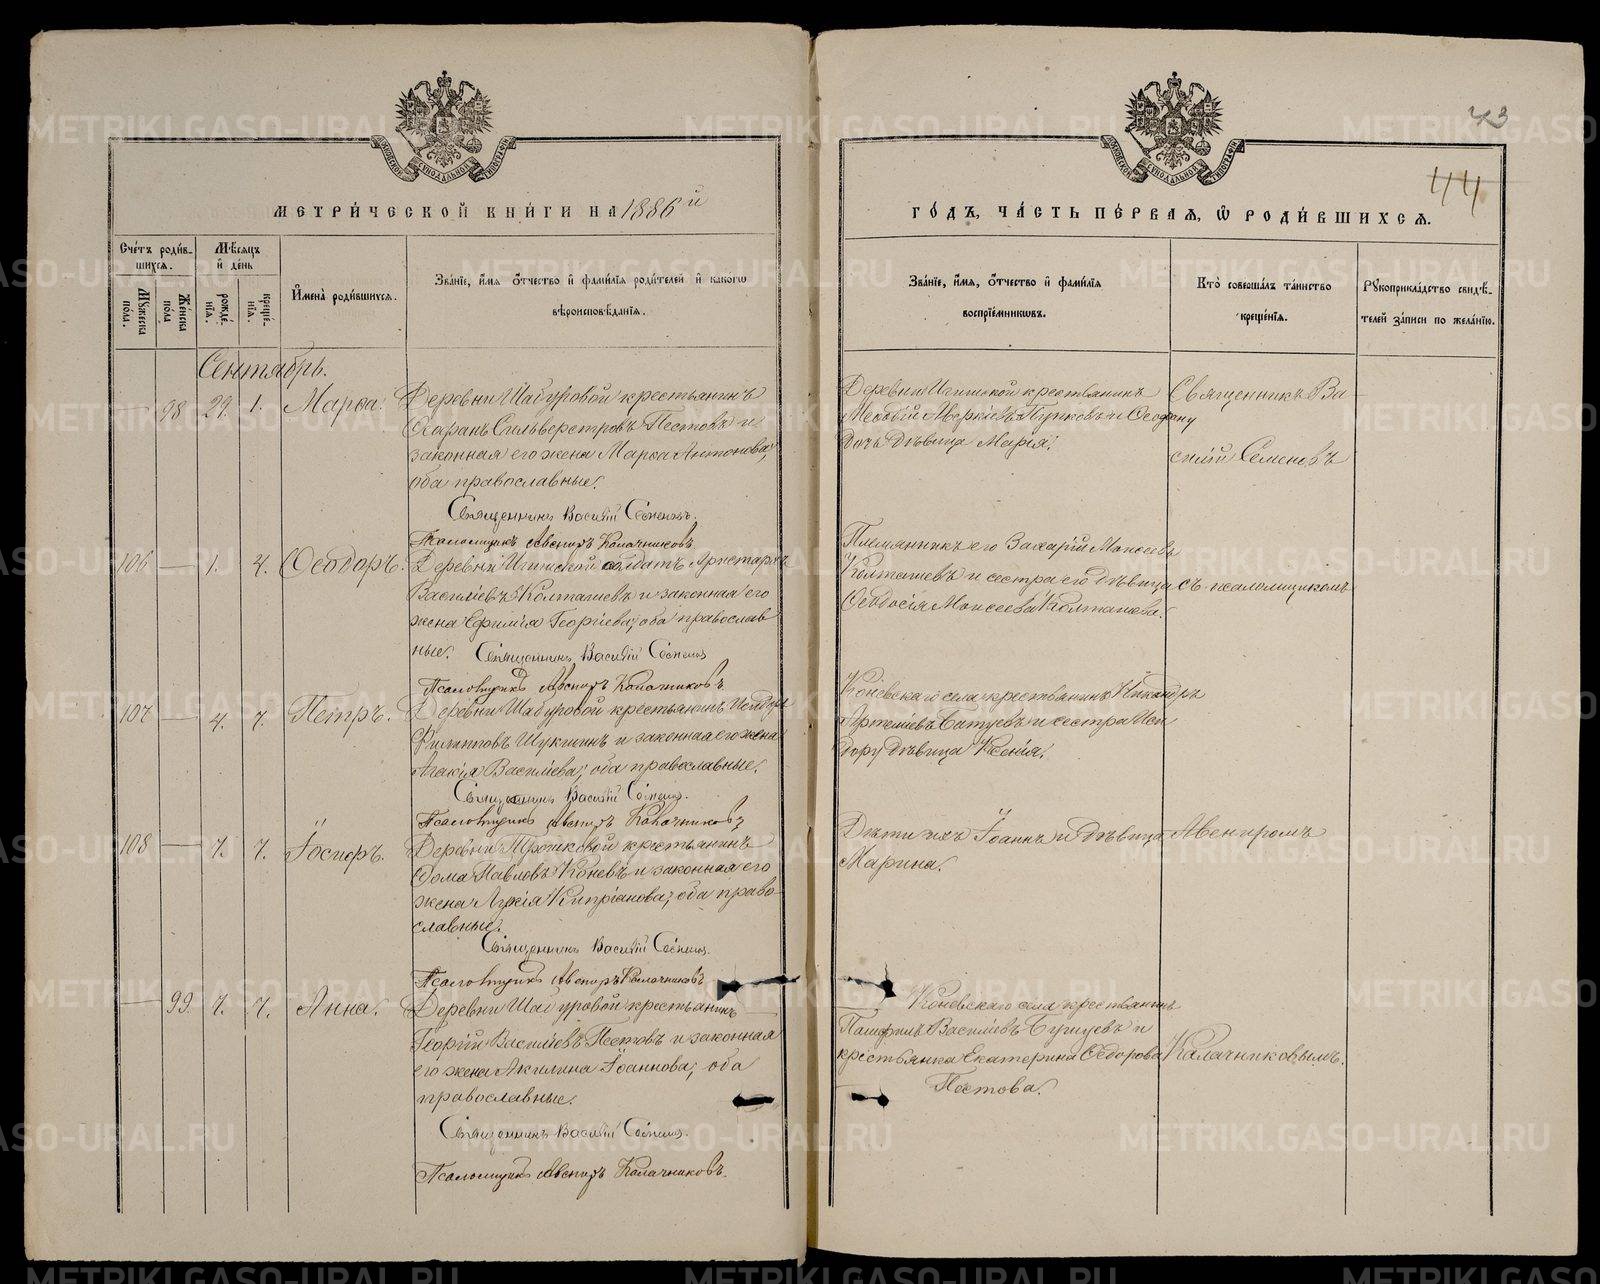 43
44
МЕТРИ́ЧЕСКОЙ КНИ́ГИ НА 1886й
ГО́ДЪ, ЧА́СТЬ ПЕ́РВАЯ, Ѡ РОДИ́ВШИХСЯ.
Сче́тъ роди́в-
шихся.
Мѣсяцъ
и де́нь
Мꙋжеска по́ла.
Же́нска по́ла
рожде́-
нїя.
креще́-
нїя.
Имена̀ роди́вшихся.
Зва́нїе, имя, Отчество и фами́лїя роди́телей и како́гѡ
вѣроисповѣданїя.
Зва́нїе, имя, Отчество и фами́лїя
воспрїе́мникѡвъ.
Кто̀ соверша́лъ та́инство
креще́нїя.
Рꙋкоприкла́дство свидѣ́-
телей за́писи по жела́нїю.
Сентябрь.
— 98 29. 1. Марѳа.
Деревни Шабуровой крестьянинъ
Сильверстровъ Пестовъ и
законная его жена Марѳа Антонова,
оба православные.
Священникъ Василій Семеновъ.
Псаломщикъ Авениръ Калачниковъ
Деревни Игишской крестьянинъ
Аверкіевъ Пунковъ и
Дочь Дѣвица Марія.
Священникъ Ва
силій Семеновъ
106 — 1. 4. Ѳеодоръ.
Деревни Игишской солдатъ Аристархъ
Васильевъ Колташевъ и законная его
жена Ефимія Георгіева, оба православ
ные. Священникъ Василій Семеновъ
Псаломщикъ Авениръ Калачниковъ
Племянникъ его Захарій Моисеевъ
Колташевъ и сестра его Дѣвица
Ѳеодосія Моисеева Колташева.
съ псаломщикомъ
107 — 4. 7. Петръ.
Деревни Шабуровой крестьянинъ Исидоръ
Филипповъ Шукшинъ и законная его жена
Васильева, оба православные.
Священникъ Василій Семеновъ.
Псаломщикъ Авениръ Калачниковъ
Коневскаго села крестьянинъ Никандръ
Артемьевъ Батуевъ и сестра Иси
дору Дѣвица Ксенія.
108 — 7. 7. Іосифъ.
Деревни крестьянинъ
Ѳома Павловъ Коневъ и законная его
жена Лукія Кипріанова, оба право
славные.
Священникъ Василій Семеновъ.
Псаломщикъ Авениръ Калачниковъ
Дѣти ихъ Іоаннъ и Дѣвица
Марина.
Авениромъ
— 99. 7. 7. Анна.
Деревни Шабуровой крестьянинъ
Георгій Васильевъ Пестовъ и законная
его жена Акилина Іоаннова, оба
православные.
Священникъ Василій Семеновъ.
Псаломщикъ Авениръ Калачниковъ.
Коневскаго села крестьянинъ
Памфилъ Васильевъ и
крестьянка Екатерина Ѳедорова
Пестова.
Калачниковымъ.
МОСКОВСКОЙ СѴНОДАЛЬНОЙ ТИПОГРАФІИ
METRIKI.GASO-URAL.RU